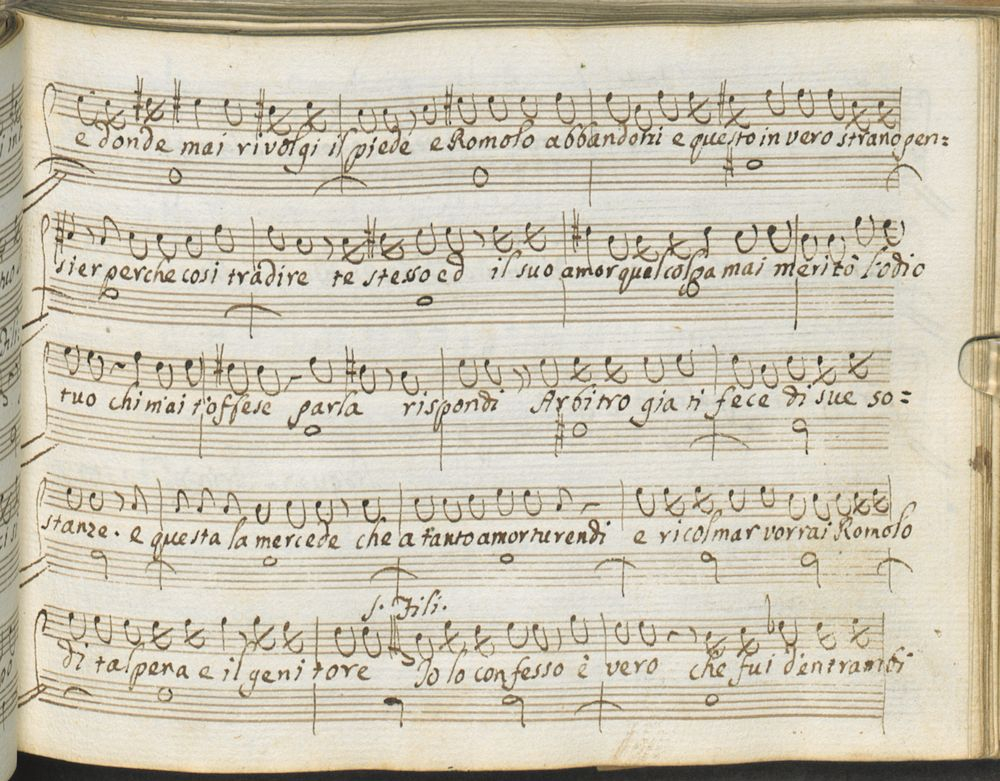 e donde mai rivolgi il piede e Romolo abbandoni e questo in vero strano pen=
sier perche cosi tradire te stesso ed il suo amor qual colpa mai meritò l'odio
tuo chi mai t'offese parla rispondi Arbitro gia ti fece di sue so=
stanze. e questa la mercede che a tanto amor tu rendi e ricolmar vorrai Romolo
S. Fili.
di tal pena e il genitore Io lo confesso è vero che fui d'entrambi